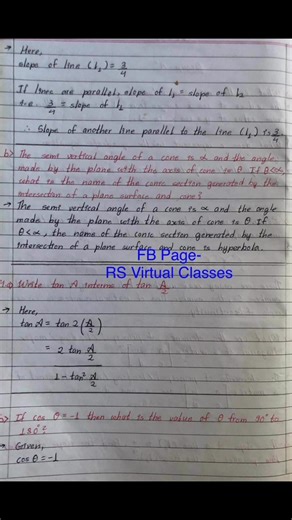 → Here,
slope of line (l₁) = 3/4
If lines are parallel, slope of l₁ = slope of l₂
i.e. 3/4 = slope of l₂
∴ Slope of another line parallel to the line (l₁) is 3/4.
b) The semi vertical angle of a cone is α and the angle
made by the plane with the axis of cone is θ. If θ<α,
what is the name of the conic section generated by the
intersection of a plane surface and cone?
→ The semi vertical angle of a cone is α and the angle
made by the plane with the axis of cone is θ. If
θ<α, the name of the conic section generated by the
intersection of a plane surface and cone is hyperbola.
FB Page-
RS Virtual Classes
Write tan A interms of tan A/2
→ Here,
tan A = tan 2(A/2)
= 2 tan A/2
1 - tan² A/2
If cos θ = -1 then what is the value of θ from 90° to
180°?
→ Given,
cos θ = -1